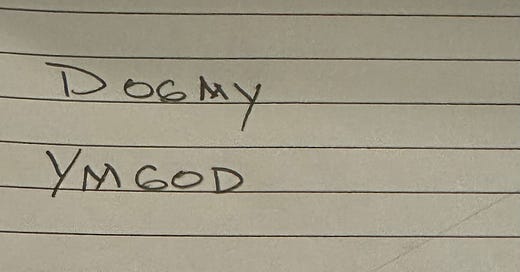 DOGMY
YMGOD